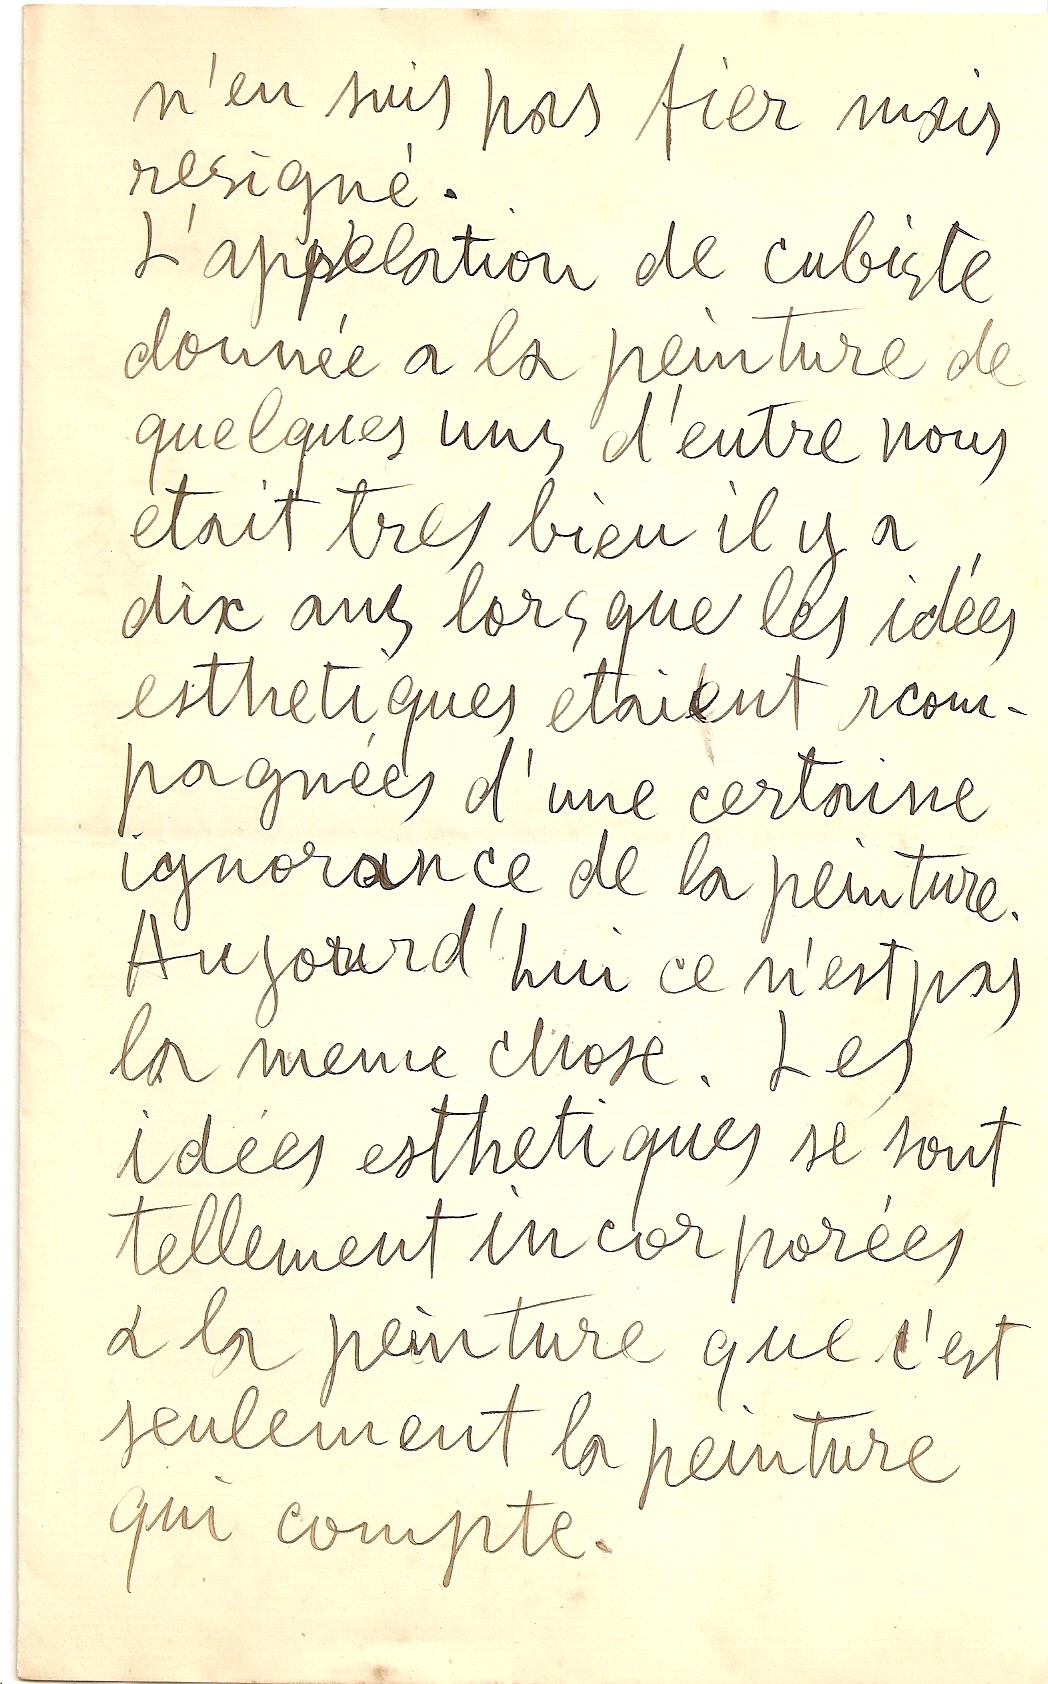 n'en suis pas fier mais
resigné.
L'appelation de cubiste
donnée a la peinture de
quelques uns d'entre nous
etait tres bien il y a
dix ans lorsque les idées
esthetiques etaient acom-
pagnées d'une certaine
ignorance de la peinture.
Aujourd'hui ce n'est pas
la meme chose. Les
idées esthetiques se sont
tellement incorporées
a la peinture que c'est
seulement la peinture
qui compte.